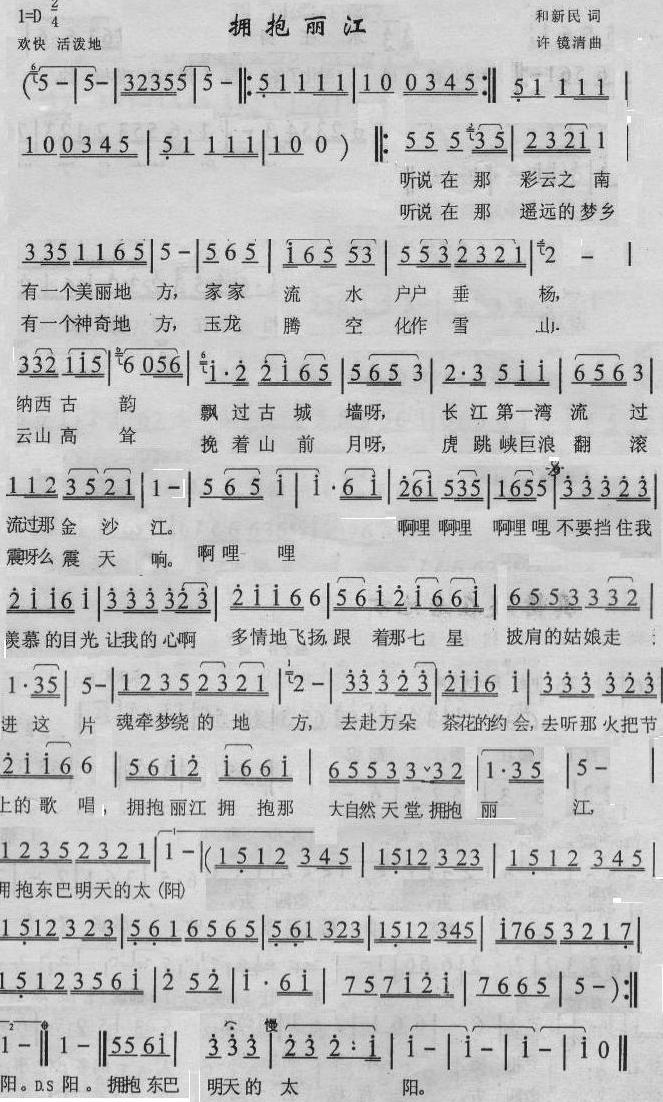 1=D 2/4
拥抱丽江
和新民 词
欢快 活泼地
许镜清 曲
(5 - | 5 - | 32355 | 5 - ‖: 51 111 | 10 0345 :‖ 51 111 |
100345 | 51 111 | 10 0 ) ‖: 55 5 35 | 2321 1 |
听说 在 那 彩云之 南
听说 在 那 遥远的 梦乡
335 1165 | 5 - | 565 | i65 53 | 553 2321 | 2 - |
有一个美丽地 方, 家家 流 水 户户 垂 杨,
有一个神奇地 方, 玉龙 腾 空 化作 雪 山.
332 1i5 | 6 056 | i·2 2i65 | 565 3 | 2·3 5ii | 656 3 |
纳西 古 韵 飘 过 古 城 墙呀, 长 江 第一湾 流 过
云山 高 耸 挽 着 山 前 月呀, 虎 跳 峡巨浪 翻 滚
112 3521 | 1 - | 565 i | i·6i | 26i 535 | 1655 | 33323 |
流过那 金 沙 江。 啊哩 啊哩 啊哩 哩, 不要挡 住我
震呀么 震 天 响。 啊 哩 哩
2ii6 i | 333323 | 2ii66 | 56i2i66i | 65533 32 |
羡慕 的目光, 让我的 心啊 多情地飞扬, 跟 着那七 星 披肩的姑娘走
1·35 | 5 - | 1235 2321 | 2 - | 33323 | 2ii6 i | 333 323 |
进 这 片 魂牵梦绕 的 地 方, 去赴万朵 茶花的约 会, 去听那 火把节
2ii6 6 | 56i2 i66i | 6553 3 32 | 1·35 | 5 - |
上的 歌 唱, 拥抱 丽江 拥 抱那 大自然 天堂, 拥抱 丽 江,
12352321 | 1 - | (1512 345 | 1512 323 | 1512 345 |
拥抱东巴明天的太 (阳)
1512323 | 5616565 | 561323 | 1512345 | i7653217 |
1512356i | 2 52 | i·6i | 757i2i | 7665 | 5 - ) :‖
慢
1 - ‖ 1 - | 556i | 333 | 232·i | i - | i - | i - | i0 ‖
阳。D.S 阳。 拥抱 东巴 明天的 太 阳。